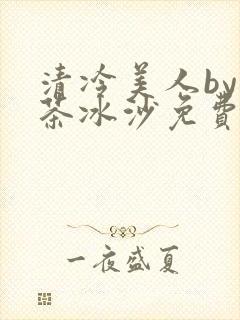 清冷美人by
茶冰沙免費
一夜盛夏